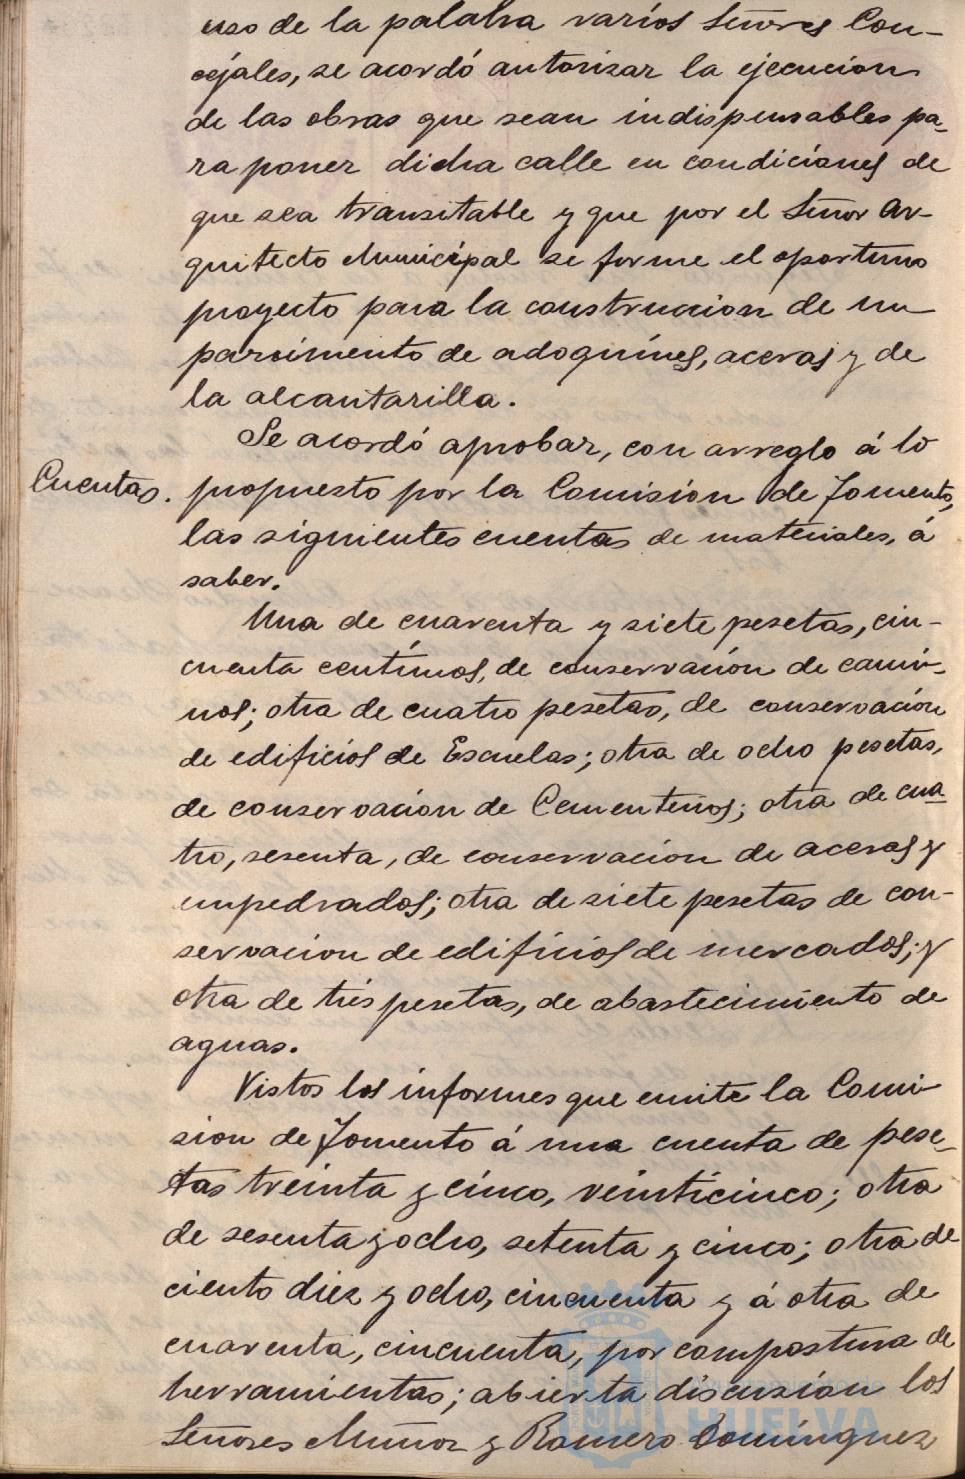 uso de la palabra varios Señores Con-
cejales, se acordó autorizar la ejecucion
de las obras que sean indispensables pa-
ra poner dicha calle en condiciones de
que sea transitable y que por el Señor Ar-
quitecto Municipal se forme el oportuno
proyecto para la construccion de un
pavimento de adoquines, aceras y de
la alcantarilla.
Se acordó aprobar, con arreglo á lo
Cuentas. propuesto por la Comision de Fomento,
las siguientes cuentas de materiales, á
saber.
Una de cuarenta y siete pesetas, cin-
cuenta centimos, de conservación de cami-
nos; otra de cuatro pesetas, de conservación
de edificios de Escuelas; otra de ocho pesetas,
de conservacion de Cementerios; otra de cua
tro, sesenta, de conservacion de aceras y
empedrados; otra de siete pesetas de con-
servacion de edificios de mercados; y
otra de tres pesetas, de abastecimiento de
aguas.
Vistos los informes que emite la Comi
sion de Fomento á una cuenta de pese-
tas treinta y cinco, veinticinco; otra
de sesenta y ocho, setenta y cinco; otra de
ciento diez y ocho, cincuenta y á otra de
cuarenta, cincuenta, por compostura de
herramientas; abierta discusion los
Señores Muñoz y Romero Dominguez
Ayuntamiento de
HUELVA